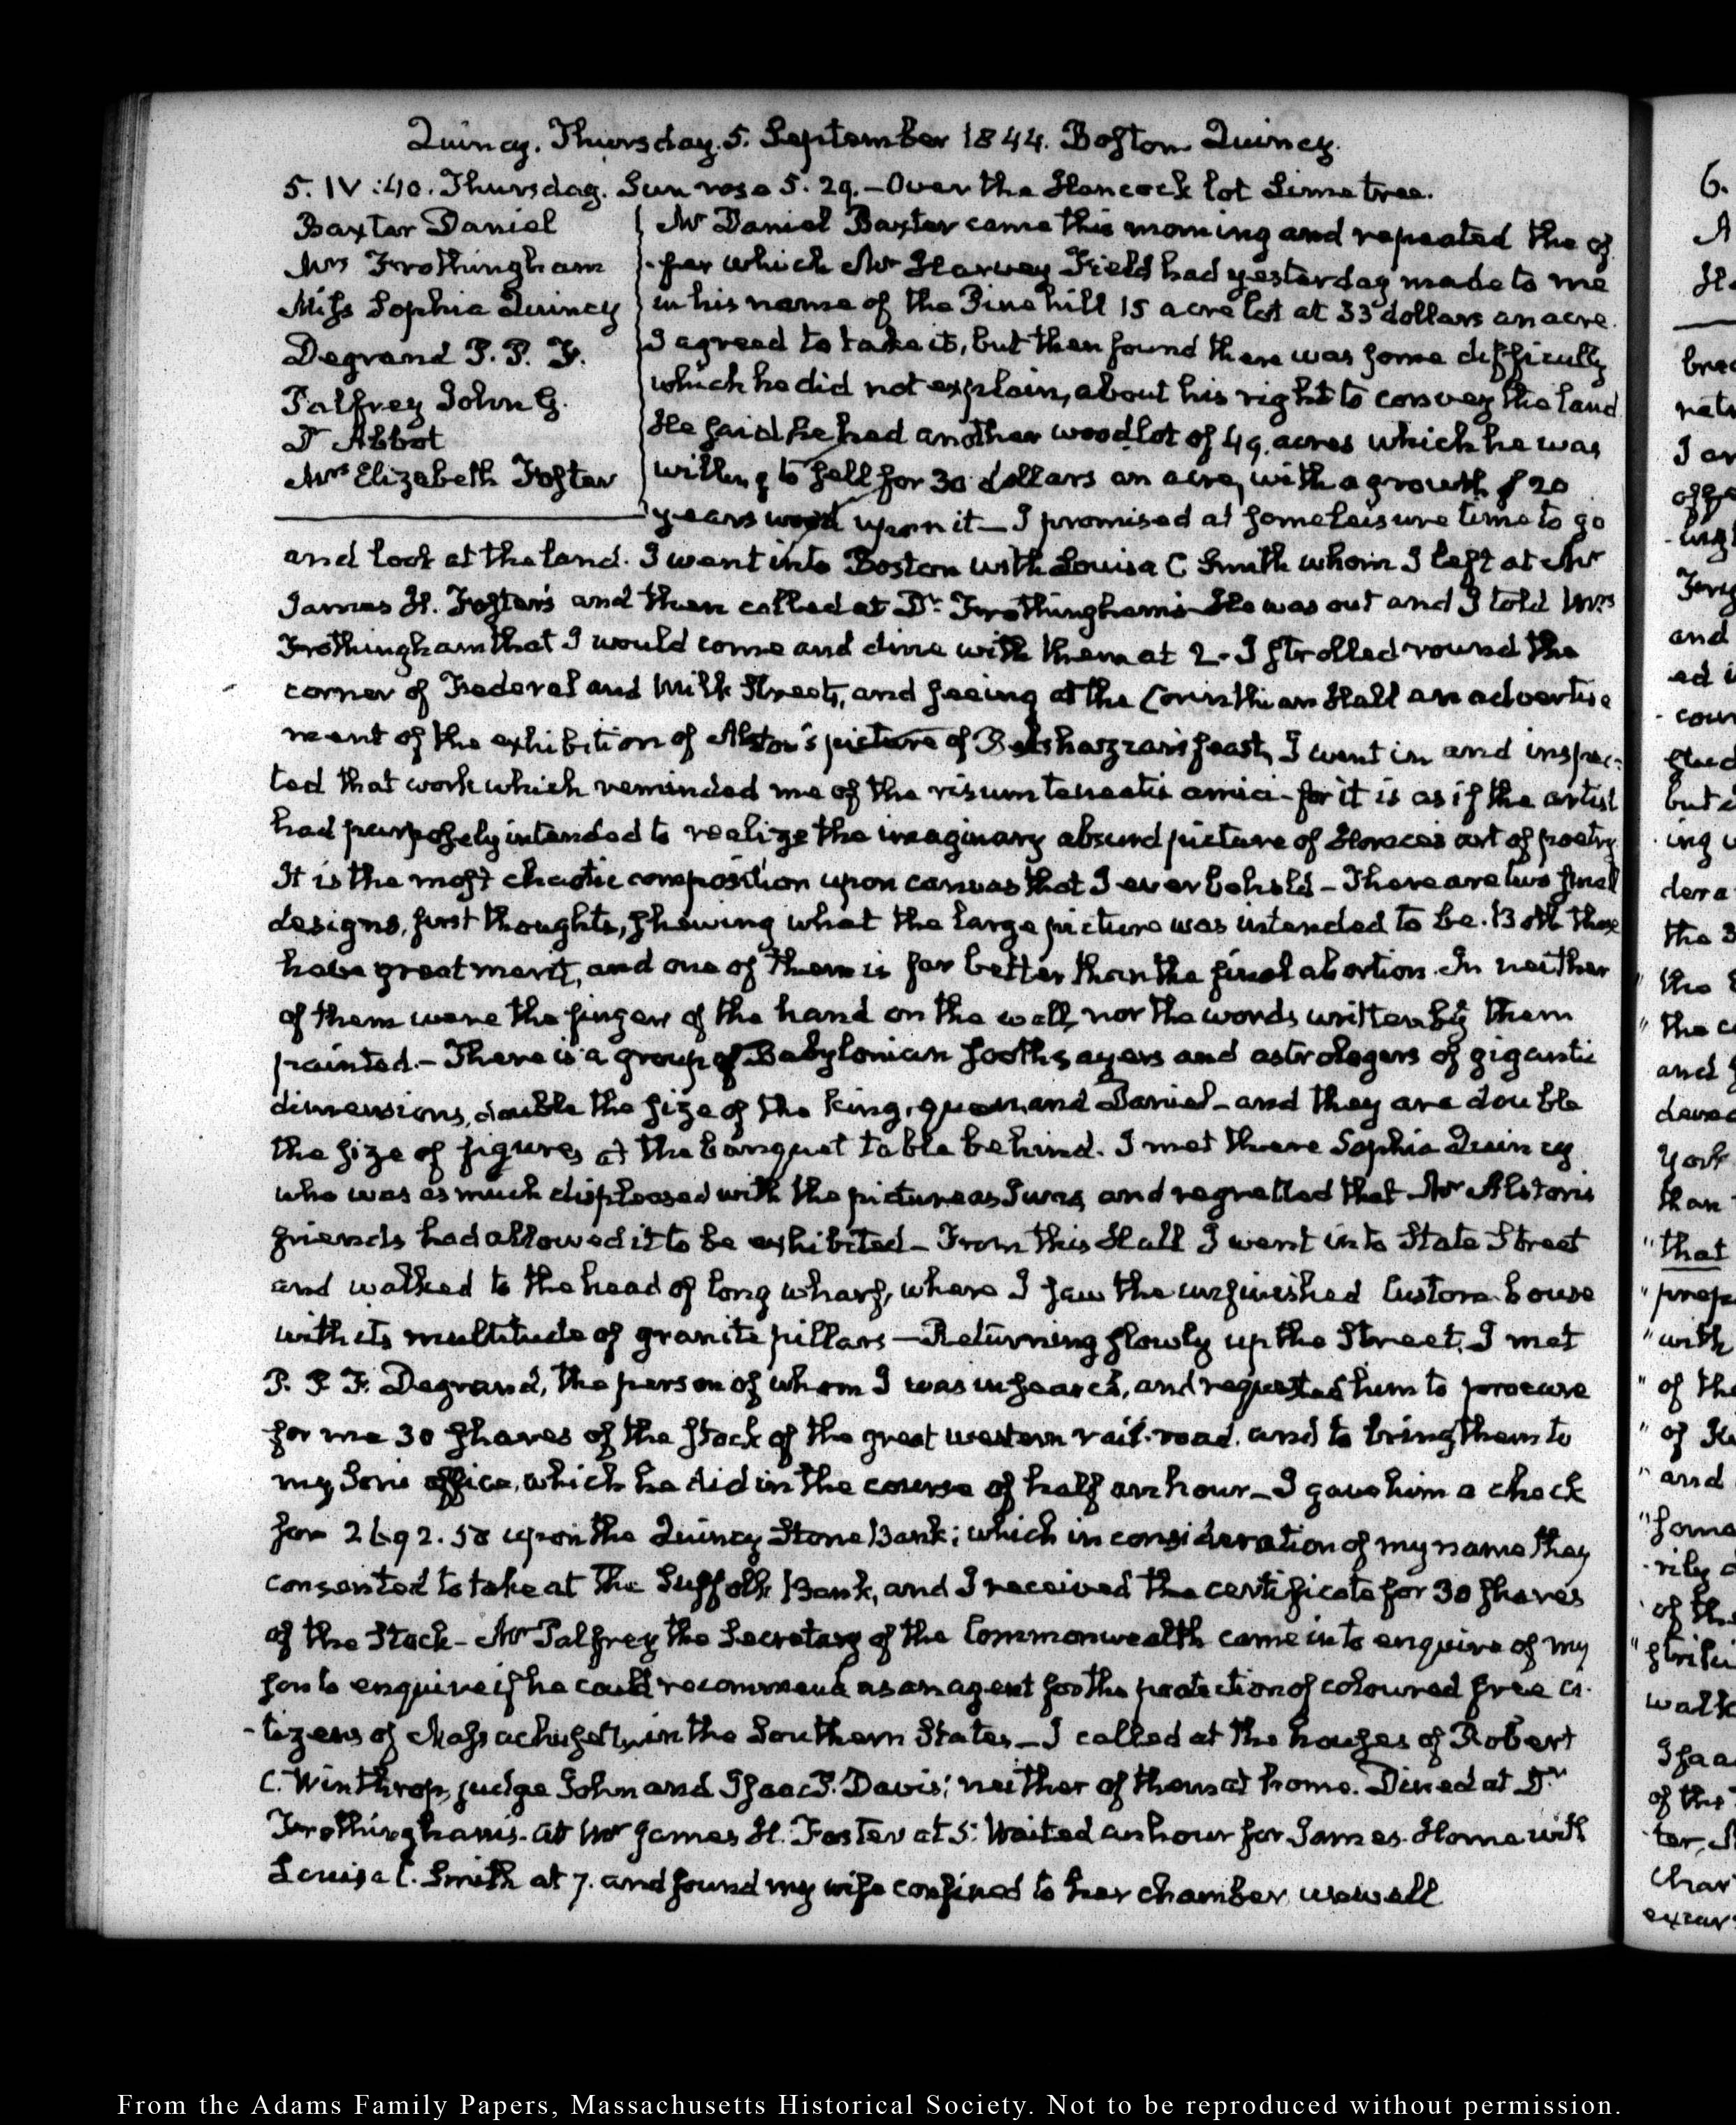 Quincy. Thursday. 5. September 1844. Boston Quincy.
5. IV:40. Thursday. Sun rose 5. 29. — Over the Hancock lot Lime tree.
Baxter Daniel
Mrs Frothingham
Miss Sophia Quincy
Degrand P. P. F.
Palfrey John G.
Dr Abbot
Mrs Elizabeth Foster
Mr Daniel Baxter came this morning and repeated the of
-fer which Mr Harvey Field had yesterday made to me
in his name of the Pine hill 15 acre lot at 33 dollars an acre.
I agreed to take it, but then found there was some difficulty
which he did not explain, about his right to convey the land
He said he had another woodlot of 49. acres which he was
willing to sell for 30 dollars an acre, with a growth of 20
years wood upon it — I promised at some leisure time to go
and look at the land. I went into Boston with Louisa C Smith whom I left at Mr
James H. Foster's and then called at Dr. Frothingham's He was out and I told Mrs
Frothingham that I would come and dine with them at 2 - I strolled round the
corner of Federal and Milk Streets, and seeing at the Corinthian Hall an advertise
ment of the exhibition of Alston's picture of Belshazzar's feast, I went in and inspec-
ted that work which reminded me of the risum teneatis amici - for it is as if the artist
had purposely intended to realize the imaginary absurd picture of Horace's art of poetry
It is the most chaotic composition upon canvas that I ever beheld - There are two small
designs, first thoughts, shewing what the large picture was intended to be. Both these
have great merit, and one of them is far better than the final abortion. In neither
of them were the fingers of the hand on the wall, nor the words written by them
painted. - There is a group of Babylonian soothsayers and astrologers of gigantic
dimensions, double the size of the king, queen and Daniel - and they are double
the size of figures at the banquet table behind. I met there Sophia Quincy
who was as much displeased with the picture as I was and regretted that Mr Alston's
friends had allowed it to be exhibited - From this Hall I went into State Street
and walked to the head of long wharf, where I saw the unfinished Custom house
with its multitude of granite pillars — Returning slowly up the Street, I met
P. P. F. Degrand, the person of whom I was in search, and requested him to procure
for me 30 shares of the stock of the great western rail-road, and to bring them to
my Son's office, which he did in the course of half an hour - I gave him a check
for 2692.50 upon the Quincy Stone Bank; which in consideration of my name they
consented to take at the Suffolk Bank, and I received the certificate for 30 shares
of the Stock - Mr Palfrey the Secretary of the Commonwealth came in to enquire of my
son to enquire if he could recommend as an agent for the protection of coloured free ci-
-tizens of Massachusetts, in the Southern States - I called at the houses of Robert
C. Winthrop, judge John and Isaac P. Davis; neither of them at home. Dined at Dr
Frothingham's. at Mr James H. Foster at 5: Waited an hour for James. Home with
Louisa C. Smith at 7. and found my wife confined to her chamber unwell
From the Adams Family Papers, Massachusetts Historical Society. Not to be reproduced without permission.